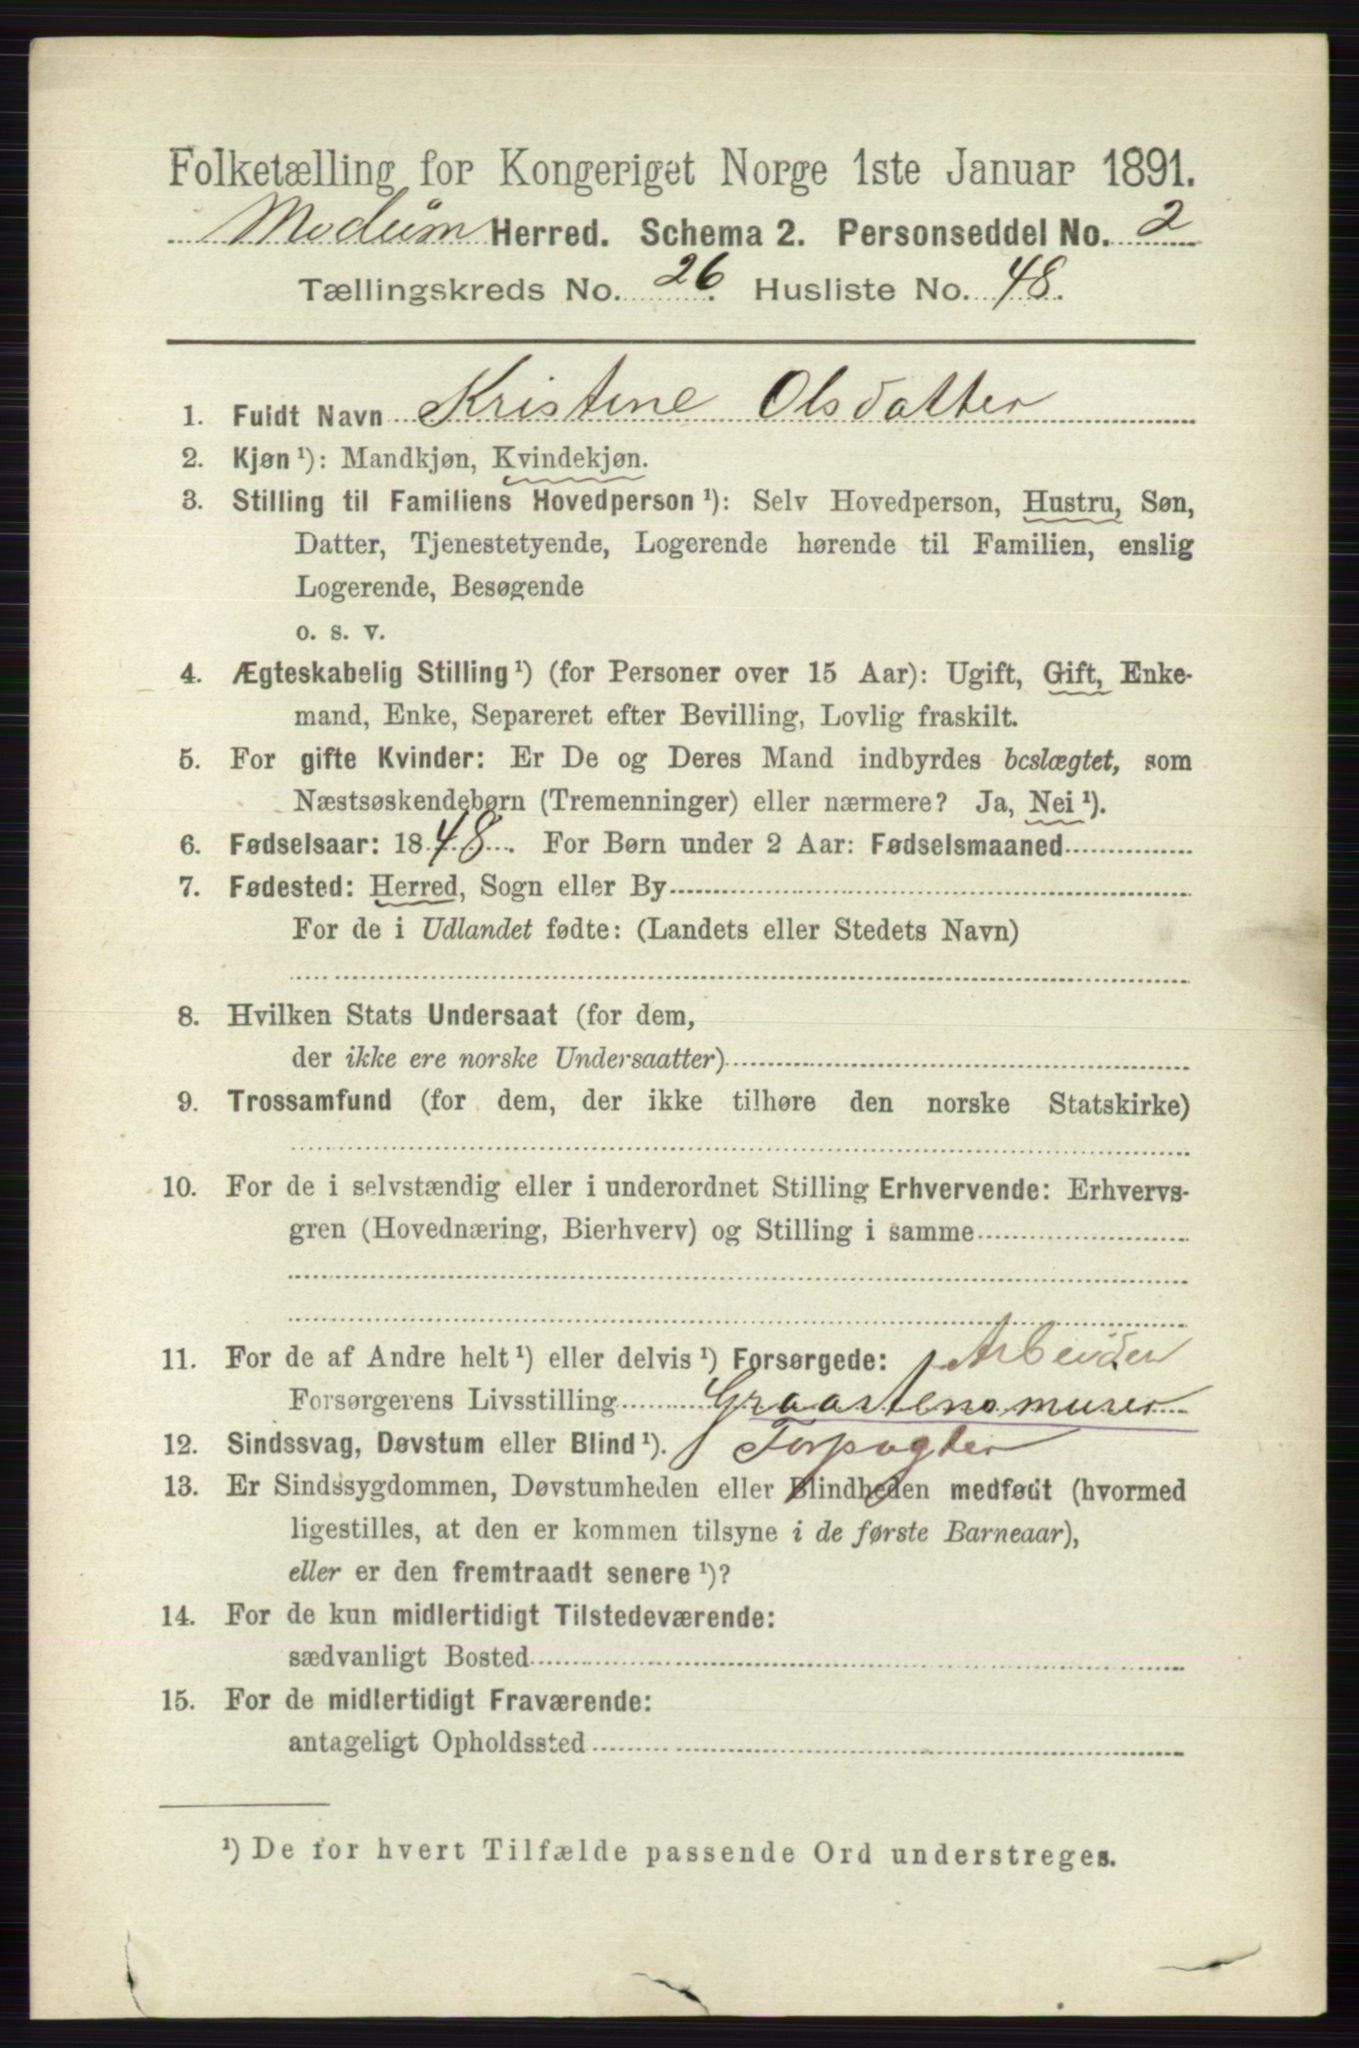 Folketælling for Kongeriget Norge 1ste Januar 1891.
Modum Herred. Schema 2. Personseddel No. 2
Tællingskreds No. 26. Husliste No. 48.
1. Fuldt Navn Kristine Olsdatter
2. Kjøn ¹): Mandkjøn, Kvindekjøn.
3. Stilling til Familiens Hovedperson ¹): Selv Hovedperson, Hustru, Søn,
Datter, Tjenestetyende, Logerende hørende til Familien, enslig
Logerende, Besøgende
o. s. v.
4. Ægteskabelig Stilling ¹) (for Personer over 15 Aar): Ugift, Gift, Enke-
mand, Enke, Separeret efter Bevilling, Lovlig fraskilt.
5. For gifte Kvinder: Er De og Deres Mand indbyrdes beslægtet, som
Næstsøskendebørn (Tremenninger) eller nærmere? Ja, Nei ¹).
6. Fødselsaar: 1848. For Børn under 2 Aar: Fødselsmaaned
7. Fødested: Herred, Sogn eller By
For de i Udlandet fødte: (Landets eller Stedets Navn)
8. Hvilken Stats Undersaat (for dem,
der ikke ere norske Undersaatter)
9. Trossamfund (for dem, der ikke tilhøre den norske Statskirke)
10. For de i selvstændig eller i underordnet Stilling Erhvervende: Erhvervs-
gren (Hovednæring, Bierhverv) og Stilling i samme
11. For de af Andre helt ¹) eller delvis ¹) Forsørgede: Arbeider
Forsørgerens Livsstilling Graastensmurer
12. Sindssvag, Døvstum eller Blind ¹). Forpagter
13. Er Sindssygdommen, Døvstumheden eller Blindheden medfødt (hvormed
ligestilles, at den er kommen tilsyne i de første Barneaar),
eller er den fremtraadt senere ¹)?
14. For de kun midlertidigt Tilstedeværende:
sædvanligt Bosted
15. For de midlertidigt Fraværende:
antageligt Opholdssted
¹) De for hvert Tilfælde passende Ord understreges.